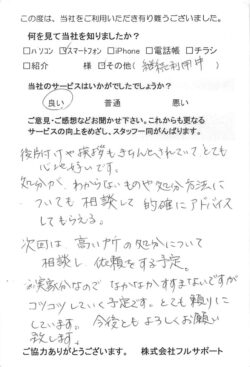 この度は、当社をご利用いただき有り難うございました。
何を見て当社を知りましたか？
□パソコン ☑スマートフォン □iPhone □電話帳 □チラシ
□紹介 様 ☑その他( 継続利用中 )
当社のサービスはいかがでしたでしょうか？
良い 普通 悪い
ご意見・ご感想などお聞かせ下さい。これからも更なる
サービスの向上をめざし、スタッフ一同がんばります。
後片付けや挨拶もきちんとされていてとても
心地好いです。
処分が、わからないものや処分方法に
ついても相談して的確にアドバイス
してもらえる。
次回は高い所の処分について
相談し依頼をする予定。
実家分なのでなかなかすすまないですが
コツコツしていく予定です。とても頼りに
しています。今後ともよろしくお願い
致します。
ご協力ありがとうございます。 株式会社フルサポート